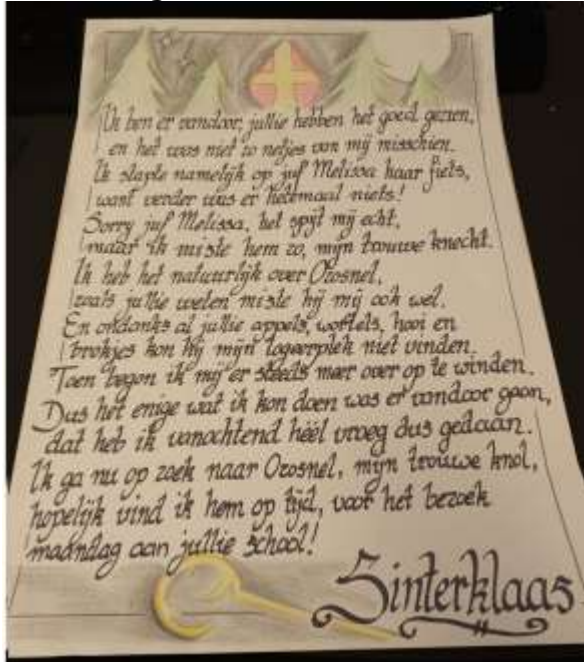 Ik ben er vandoor, jullie hebben het goed gezien,
en het was niet zo netjes van mij misschien.
Ik stapte namelijk op juf Melissa haar fiets,
want verder was er helemaal niets!
Sorry juf Melissa, het spijt mij echt,
maar ik miste hem zo, mijn trouwe knecht.
Ik heb het natuurlijk over Ozosnel,
zoals jullie weten miste hij mij ook wel.
En ondanks al jullie appels, wortels, hooi en
brokjes kon hij mijn logeerplek niet vinden.
Toen begon ik mij er steeds meer over op te winden.
Dus het enige wat ik kon doen was er vandoor gaan,
dat heb ik vanochtend héél vroeg dus gedaan.
Ik ga nu op zoek naar Ozosnel, mijn trouwe knol,
hopelijk vind ik hem op tijd, voor het bezoek
maandag aan jullie school!
Sinterklaas